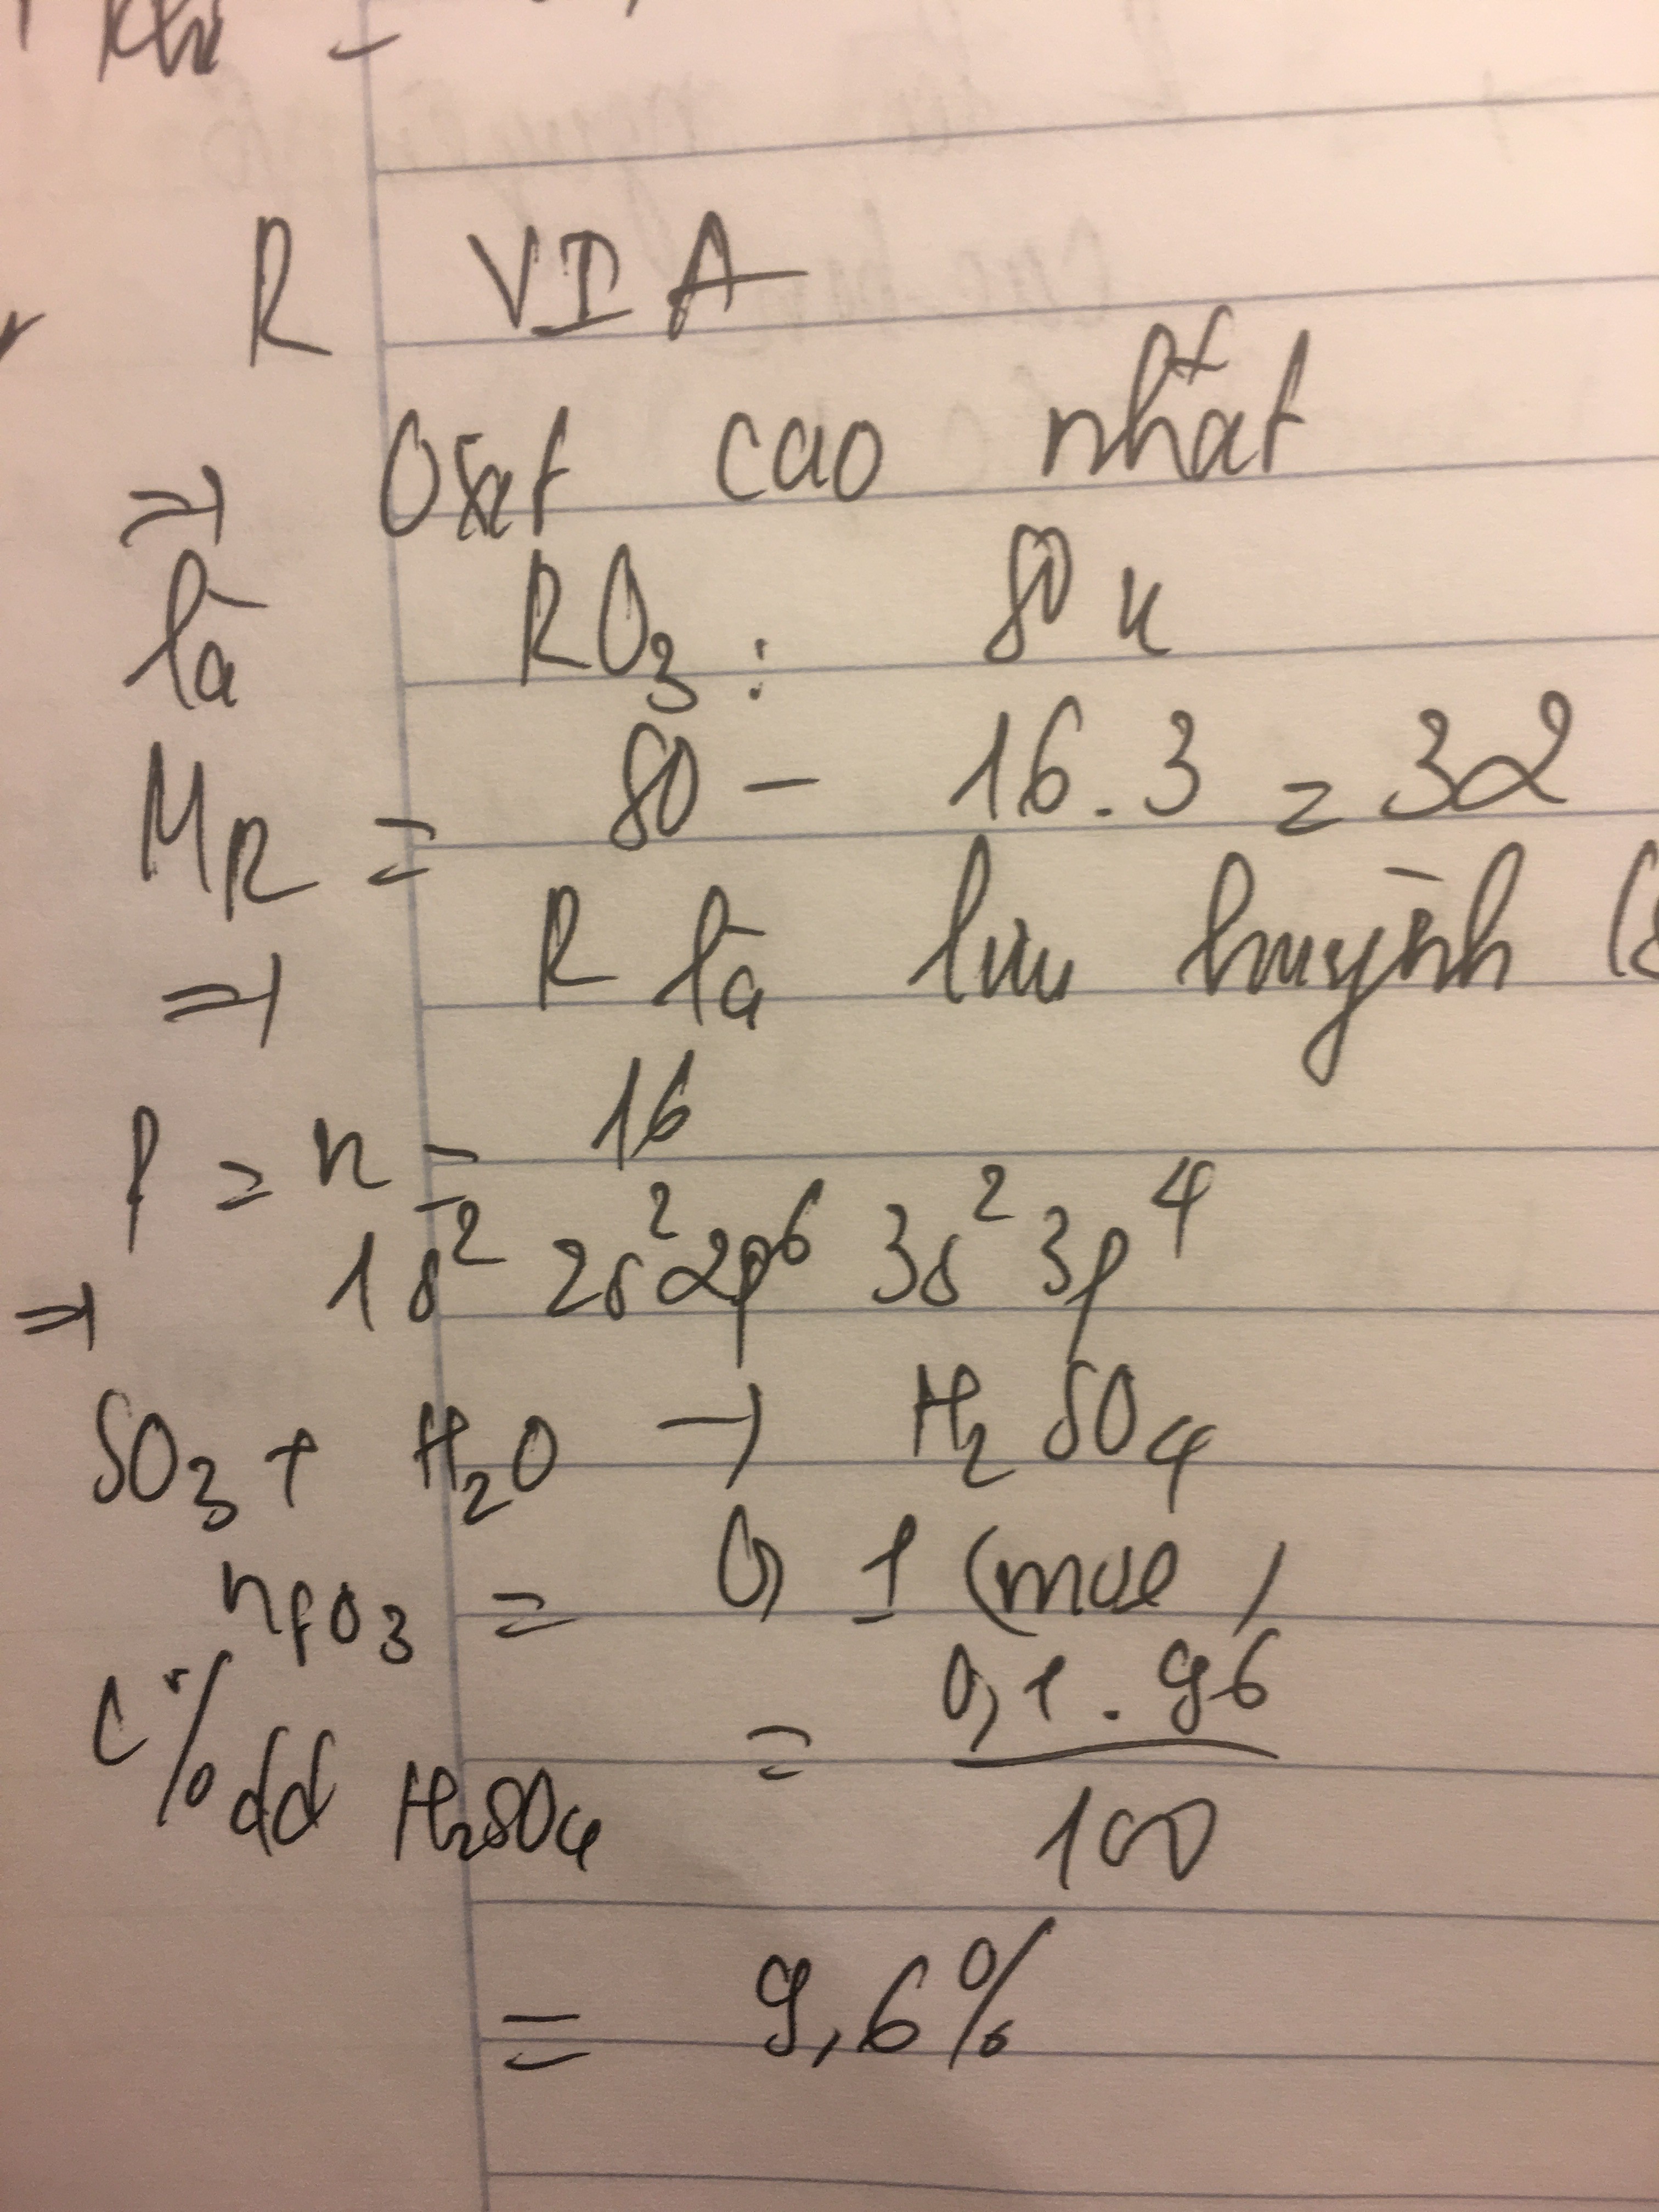 khí
R VIA
⇒ Oxit cao nhất
là RO₃ : 80 u
M_R = 80 - 16.3 = 32
⇒ R là lưu huỳnh (S
p = n = 16
⇒ 1s² 2s² 2p⁶ 3s² 3p⁴
SO₃ + H₂O → H₂SO₄
nSO₃ = 0,1 (mol)
C% dd H₂SO₄ = 0,1 . 96 / 100
= 9,6%